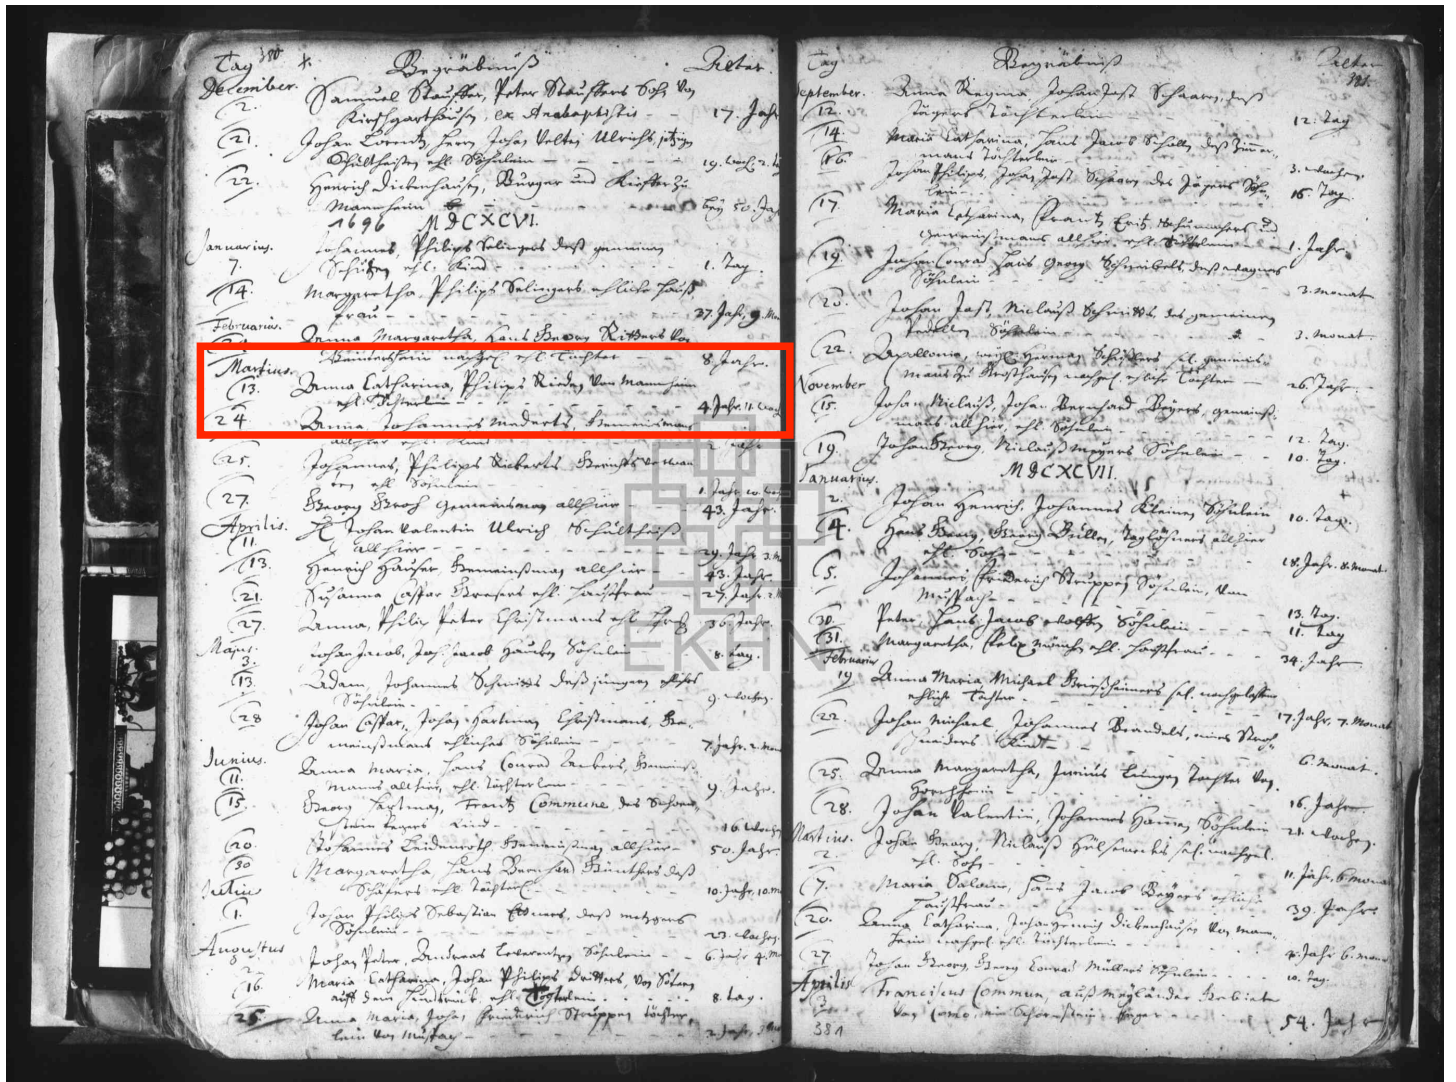 Tag
380
Begräbnuß
Alter.
December.
2.
Samuel Stauffer, Peter Stauffers Sohn von
Kirschgarthausen, ex Anabaptistis - -
17. Jahr
21.
Johan Lorentz, Herrn Johan Veltin Ulrichs, jetzigen
Schultheißen ehl. Söhnlein
19. Woch. 2. Tag
22.
Henrich Dickenhausen, Burger und Kieffer zu
Mannheim
bey 50. Jahr
1696 MDCXCVI.
Januarius.
7.
Johannes, Philips Selingers deß gemeinen
Schützen ehl. Kind
1. Tag.
14.
Margaretha, Philips Selingers ehliche Hauß
frau
37. Jahr, 9. Mon
Februarius.
Anna Margaretha, Hans Georg Ritters von
nachgel. ehl. Tochter
8. Jahr.
Martius.
13.
Anna Catharina, Philips Rieden von Mannheim
ehl. Töchterlein
4. Jahr. 11. Woch
24.
Anna, Johannes Mederts, Gemeinsmans
allhier ehl. Kind
2. Jahr
25.
Johannes, Philips Rickerts Gerichtsverwan
ten ehl. Söhnlein
1. Jahr
27.
Georg Groh Gemeinsman allhier
43. Jahr.
Aprilis.
11.
H. Johan Valentin Ulrich Schultheiß
allhier
29. Jahr 3. M
13.
Henrich Hauser, Gemeinsman allhier
43. Jahr
21.
Susanna Caspar Grasers ehl. Haußfrau
27. Jahr 2. M
27.
Anna, Philip Peter Christmans ehl. Haußfr
36. Jahr.
Majus.
3.
Johan Jacob, Joh. Jacob Söhnlein
8. Tag.
13.
Adam, Johannes Schmitts deß jungen
Söhnlein
9. Wochen.
28
Johan Caspar, Johan Hartman Christmans, Ge-
meinsmans ehliches Söhnlein
7. Jahr. 2. Mon
Junius.
11.
Anna Maria, Hans Conrad Gemeins-
mans allhier, ehl. Töchterlein
9. Jahr.
15.
Georg Hartman, Frantz Commune des Schorn
stein fegers Kind
16 Wochen
20.
Johannes Gemeinsman allhier
50. Jahr.
30
Margaretha, Hans Bernhard Günthers deß
Schäfers ehl Töchterl.
10. Jahr, 10. M
Julius
1.
Johan Philips Sebastian deß metzgers
Söhnlein
23. Wochen.
Augustus
Johan Peter, Andreas Söhnlein
6. Jahr 4. M
16.
Maria Catharina, Johan Philips von
auff dem ehl. Töchterlein
8. tag.
25.
Anna Maria, Johan Friderich Struppen töchter
lein von Mußbach
2. Jahr, 3
Tag
Begräbniß
Alter
381.
September.
12.
Anna Regina Johan Jost Schaaren, deß
Jägers Töchterlein
12. tag
14.
Maria Catharina, Hans Jacob Schollen, deß Zimmer-
mans Töchterlein
3. Wochen
16.
Johan Philips, Johan Jost Schaaren des Jägers Söhn-
lein
16. Tag.
17.
Maria Catharina, Frantz Schumachers und
gemeinsmans allhier, ehl. Töchterlein
1. Jahr.
19
Johan Conrad, Hans Georg Schreibels, deß Wagners
Söhnlein
3. monat
20.
Johan Jost, Niclauß Schmitts, des gemeinen
Söhnlein
3. monat.
22.
Apollonia, weyl. Herman Schüßlers sel. gemeins-
mans zu nachgel. ehliche Tochter
26. Jahr.
November
15.
Johan Niclauß, Johan Bernhard Beyers, gemeins-
mans allhier, ehl. Söhnlein
12. Tag.
19.
Johan Georg, Niclauß Meyers Söhnlein
10. Tag.
MDCXCVII.
Januarius.
2.
Johan Henrich, Johannes Kleinen Söhnlein
10. Tag.
4.
Hans Georg, Georg Taglöhners allhier
ehl. Sohn
18. Jahr. 8. Monat
5.
Johannes, Friderich Struppen Söhnlein, von
Mußbach
13. Tag.
30.
Peter, Hans Jacob Wolffen Söhnlein
11. Tag
31.
Margaretha, Felix ehl. Haußfrau
34. Jahr
Februarius
19
Anna Maria Michael sel. nachgelaßene
ehliche Tochter
17. Jahr. 7. Monat
22.
Johan Michael Johannes Brandels, eines Stroh-
schneiders Kind
6. Monat.
25.
Anna Margaretha, Tochter von
16. Jahr
28.
Johan Valentin, Johannes Söhnlein
21. Wochen.
Martius.
2.
Johan Georg, Niclauß sel. nachgel.
ehl. Sohn
11. Jahr. 6. mona
7.
Maria Salome, Hans Jacob Beyers ehliche
Haußfrau
39. Jahr.
20.
Anna Catharina, Johan Henrich Dickenhausen von Mann-
heim nachgel. ehl. Töchterlein
4. Jahr 6. mona
27.
Johan Georg, Georg Conrad Müllers Söhnlein
10. tag.
Aprilis
3
Franciscus Commun, auß Meyländer Gebiete
von Como, ein Schornstein feger
54. Jahr
381
EKHN